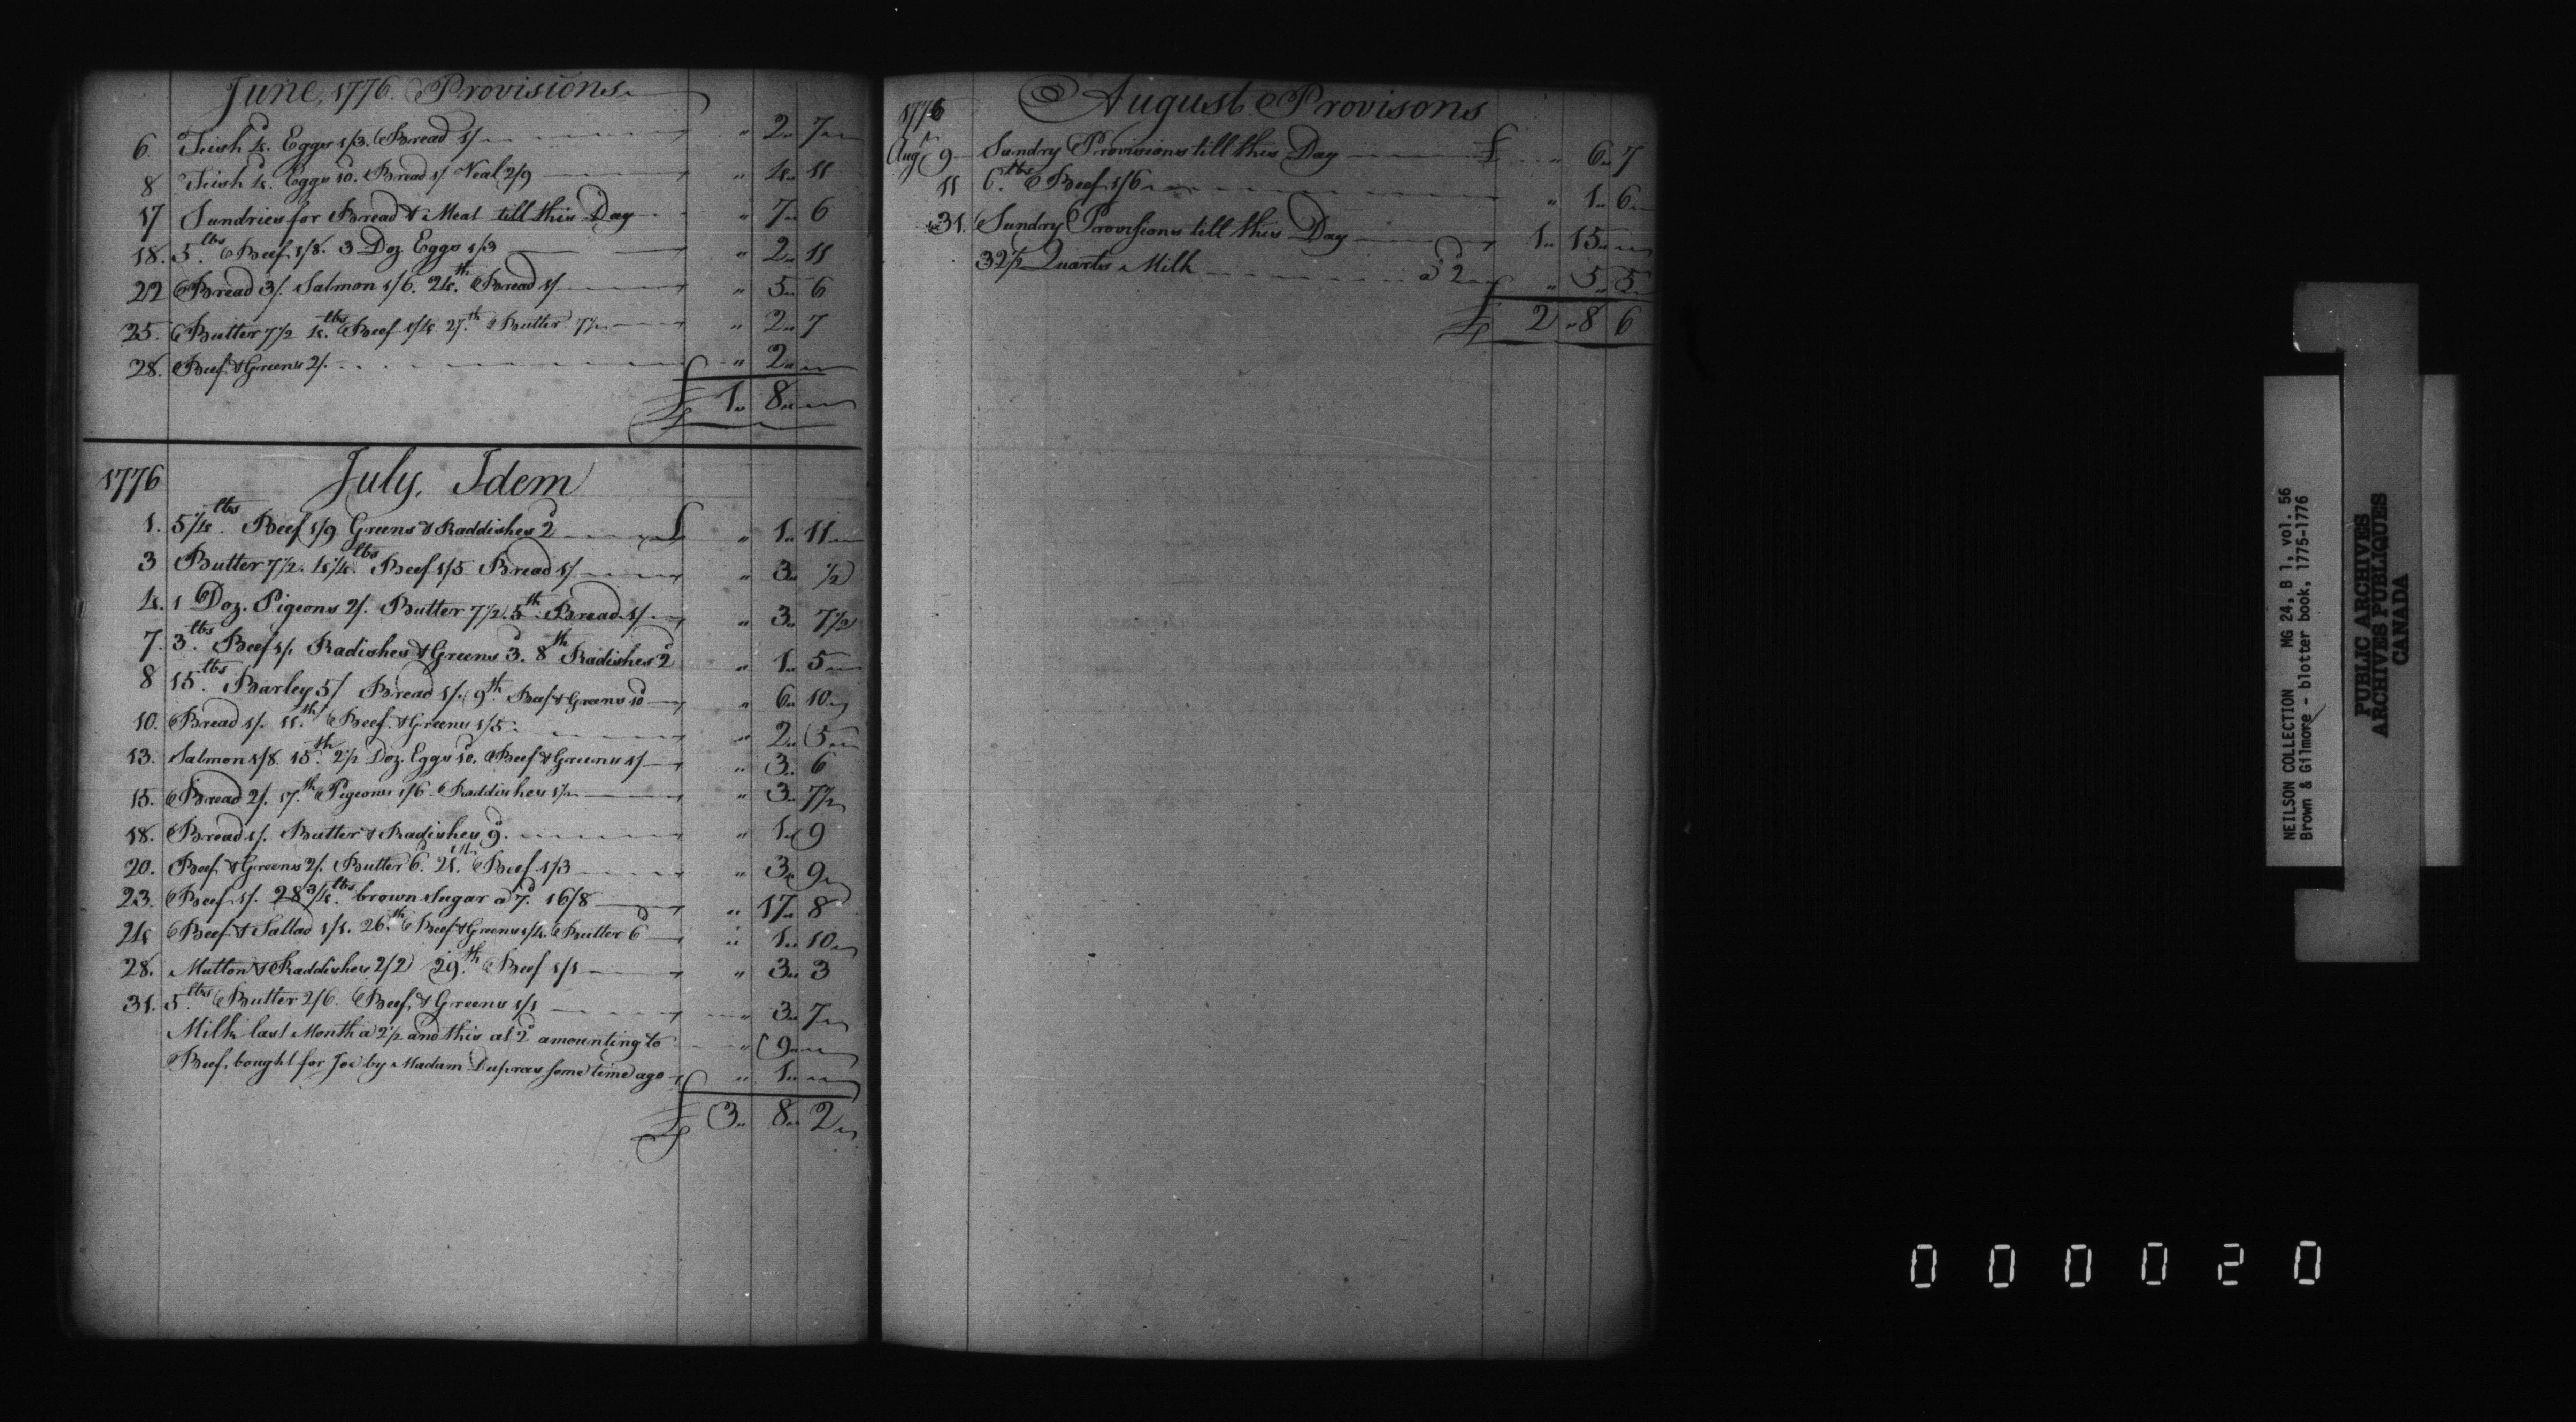 June, 1776. Provisions
6 Fish 4d. Eggs 1/3. Bread 1/ " 2 7
8 Fish 4d. Eggs 10d. Bread 1/ Veal 2/9 " 4 11
17 Sundries for Bread & Meat till this Day " 7 6
18. 5lbs Beef 1/8. 3 Doz. Eggs 1/3 " 2 11
22 Bread 3/. Salmon 1/6. 24th Bread 1/ " 5 6
25. Butter 7½ 4lbs Beef 1/4. 27th Butter 7½ " 2 7
28. Beef & Greens 2/. " 2
£ 1 8
1776 July, Idem
1. 5¼lbs Beef 1/9 Greens & Raddishes 2d £ " 1 11
3 Butter 7½. 4¼lbs Beef 1/5 Bread 1/ " 3 ½
4. 1 Doz. Pigeons 2/. Butter 7½. 5th Bread 1/ " 3 7½
7. 3lbs Beef 1/. Radishes & Greens 3d. 8th Radishes 2d " 1 5
8 15lbs Barley 5/ Bread 1/. 9th Beef & Greens 10d " 6 10
10. Bread 1/. 11th Beef & Greens 1/5 " 2 5
13. Salmon 1/8. 15th 2½ Doz. Eggs 10d. Beef & Greens 1/ " 3 6
15. Bread 2/. 17th Pigeons 1/6 Raddishes 1½ " 3 7½
18. Bread 1/. Butter & Radishes 9d. " 1 9
20. Beef & Greens 2/. Butter 6d. 21st Beef 1/3 " 3 9
23. Beef 1/. 28¾lbs brown Sugar a 7d. 16/8 " 17 8
24 Beef & Sallad 1/1. 26th Beef & Greens 1/4. Butter 6d " 1 10
28. Mutton & Raddishes 2/2 29th Beef 1/1 " 3 3
31. 5lbs Butter 2/6. Beef, & Greens 1/1 " 3 7
Milk last Month a 2½ and this at 2d amounting to " 9
Beef, bought for Joe by Madam Dupras some time ago " 1
£ 3 8 2
1776 August Provisons
Augt 9 Sundry Provisions till this Day £ " 6 7
11 6lbs Beef 1/6 " 1 6
31. Sundry Provisions till this Day 1 15
32½ Quarts Milk a 2d " 5 5
£ 2 8 6
NEILSON COLLECTION MG 24, B 1, vol. 56
Brown & Gilmore - blotter book, 1775-1776
PUBLIC ARCHIVES
ARCHIVES PUBLIQUES
CANADA
000020